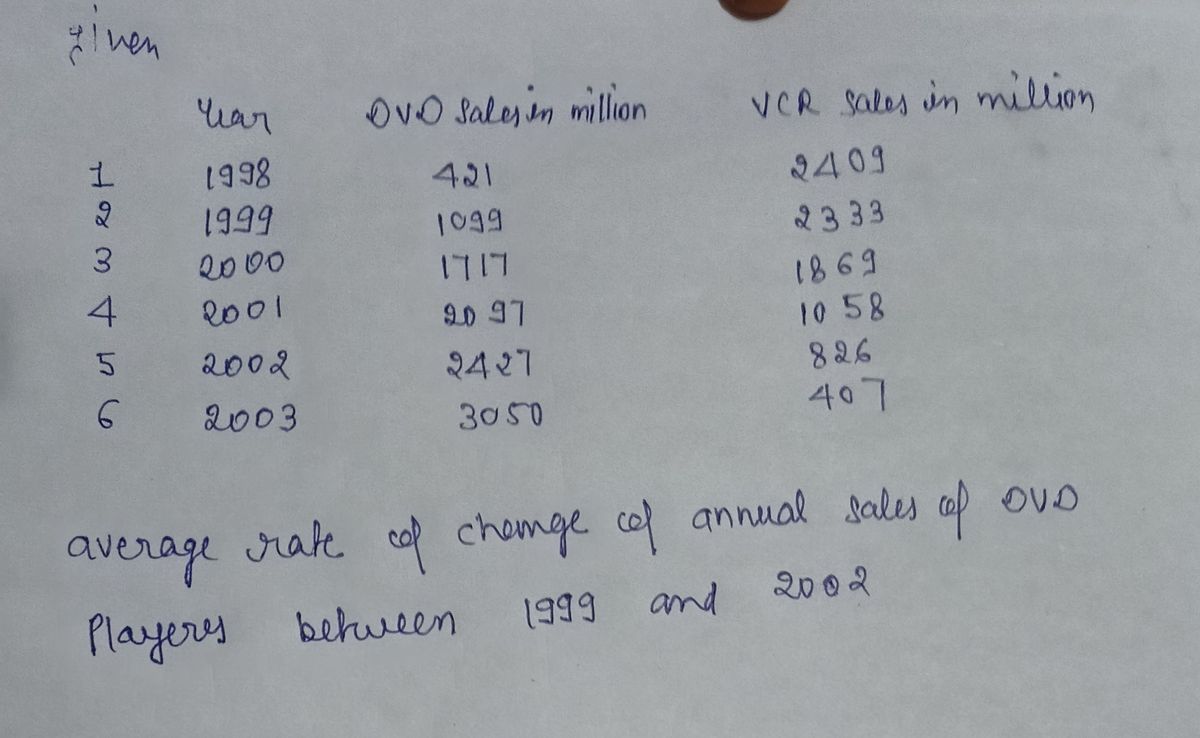 given
Year DVD Sales in million VCR sales in million
1 1998 421 2409
2 1999 1099 2333
3 2000 1717 1869
4 2001 2097 1058
5 2002 2427 826
6 2003 3050 407
average rate of change of annual sales of DVD
Players between 1999 and 2002